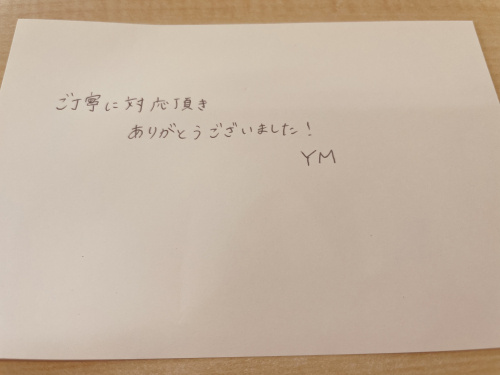 ご丁寧に対応頂き
ありがとうございました!
YM